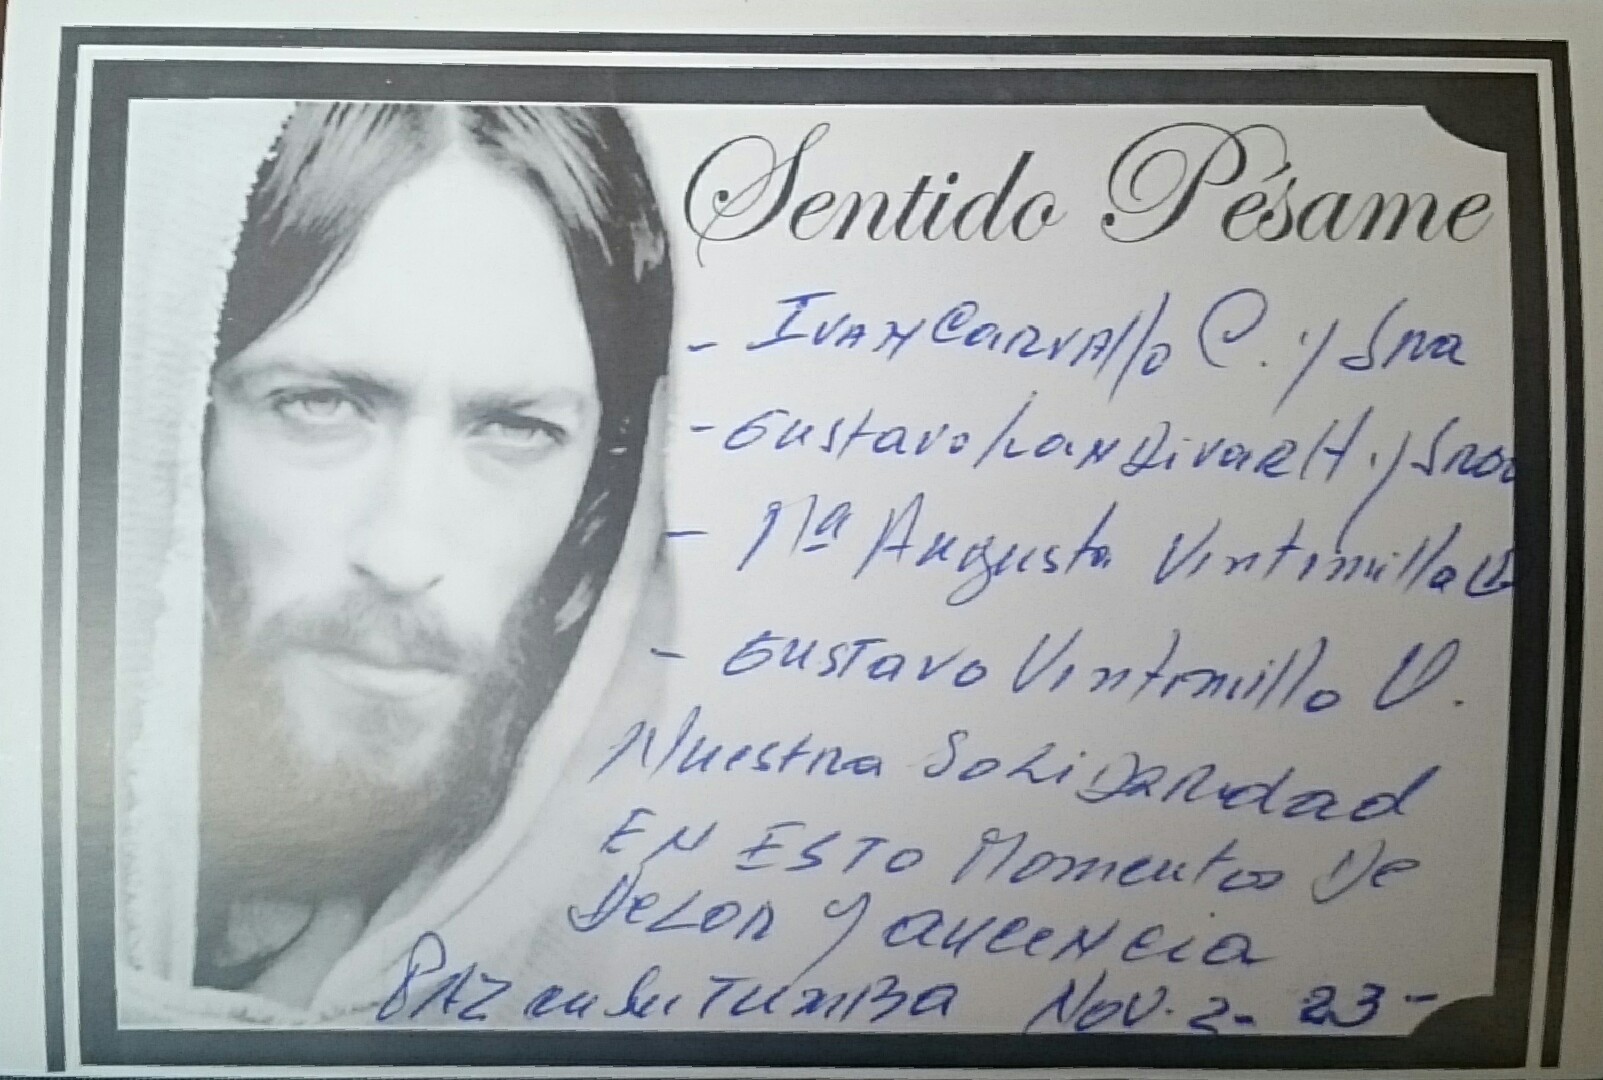 Sentido Pésame
- Ivan Carvallo C. y Sra
- Gustavo Landivar H. y Sra
- Mª Augusta Vintimilla
- Gustavo Vintimilla V.
Nuestra Solidaridad
EN ESTO Momentos De
DeLor y aucencia
PAZ en su Tumba Nov. 2- 23-